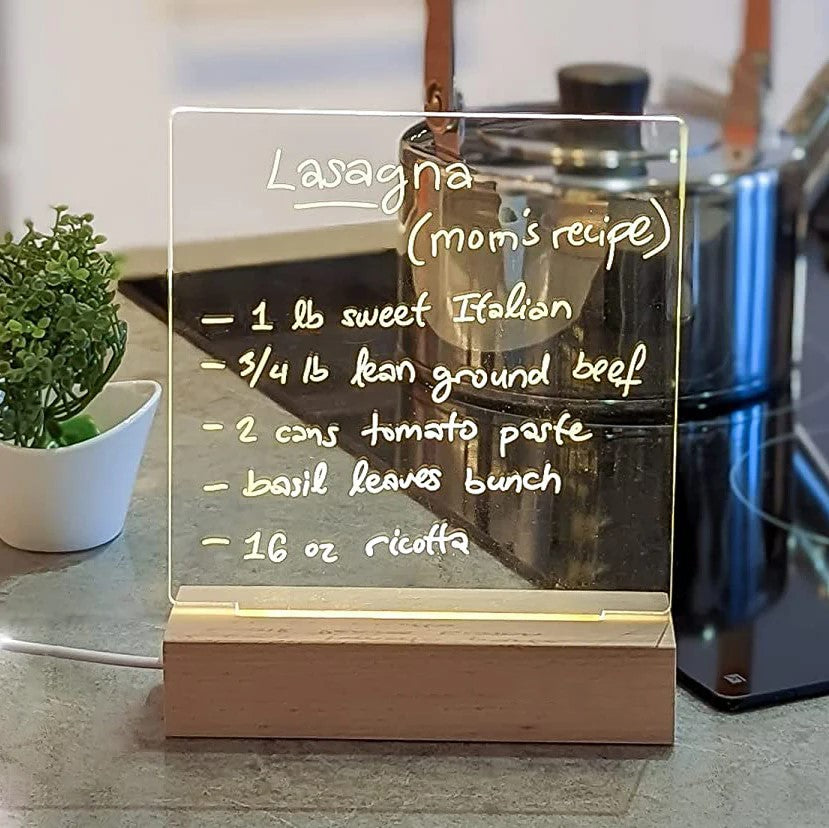 Lasagna
(mom's recipe)
- 1 lb sweet Italian
- 3/4 lb lean ground beef
- 2 cans tomato paste
- basil leaves bunch
- 16 oz ricotta